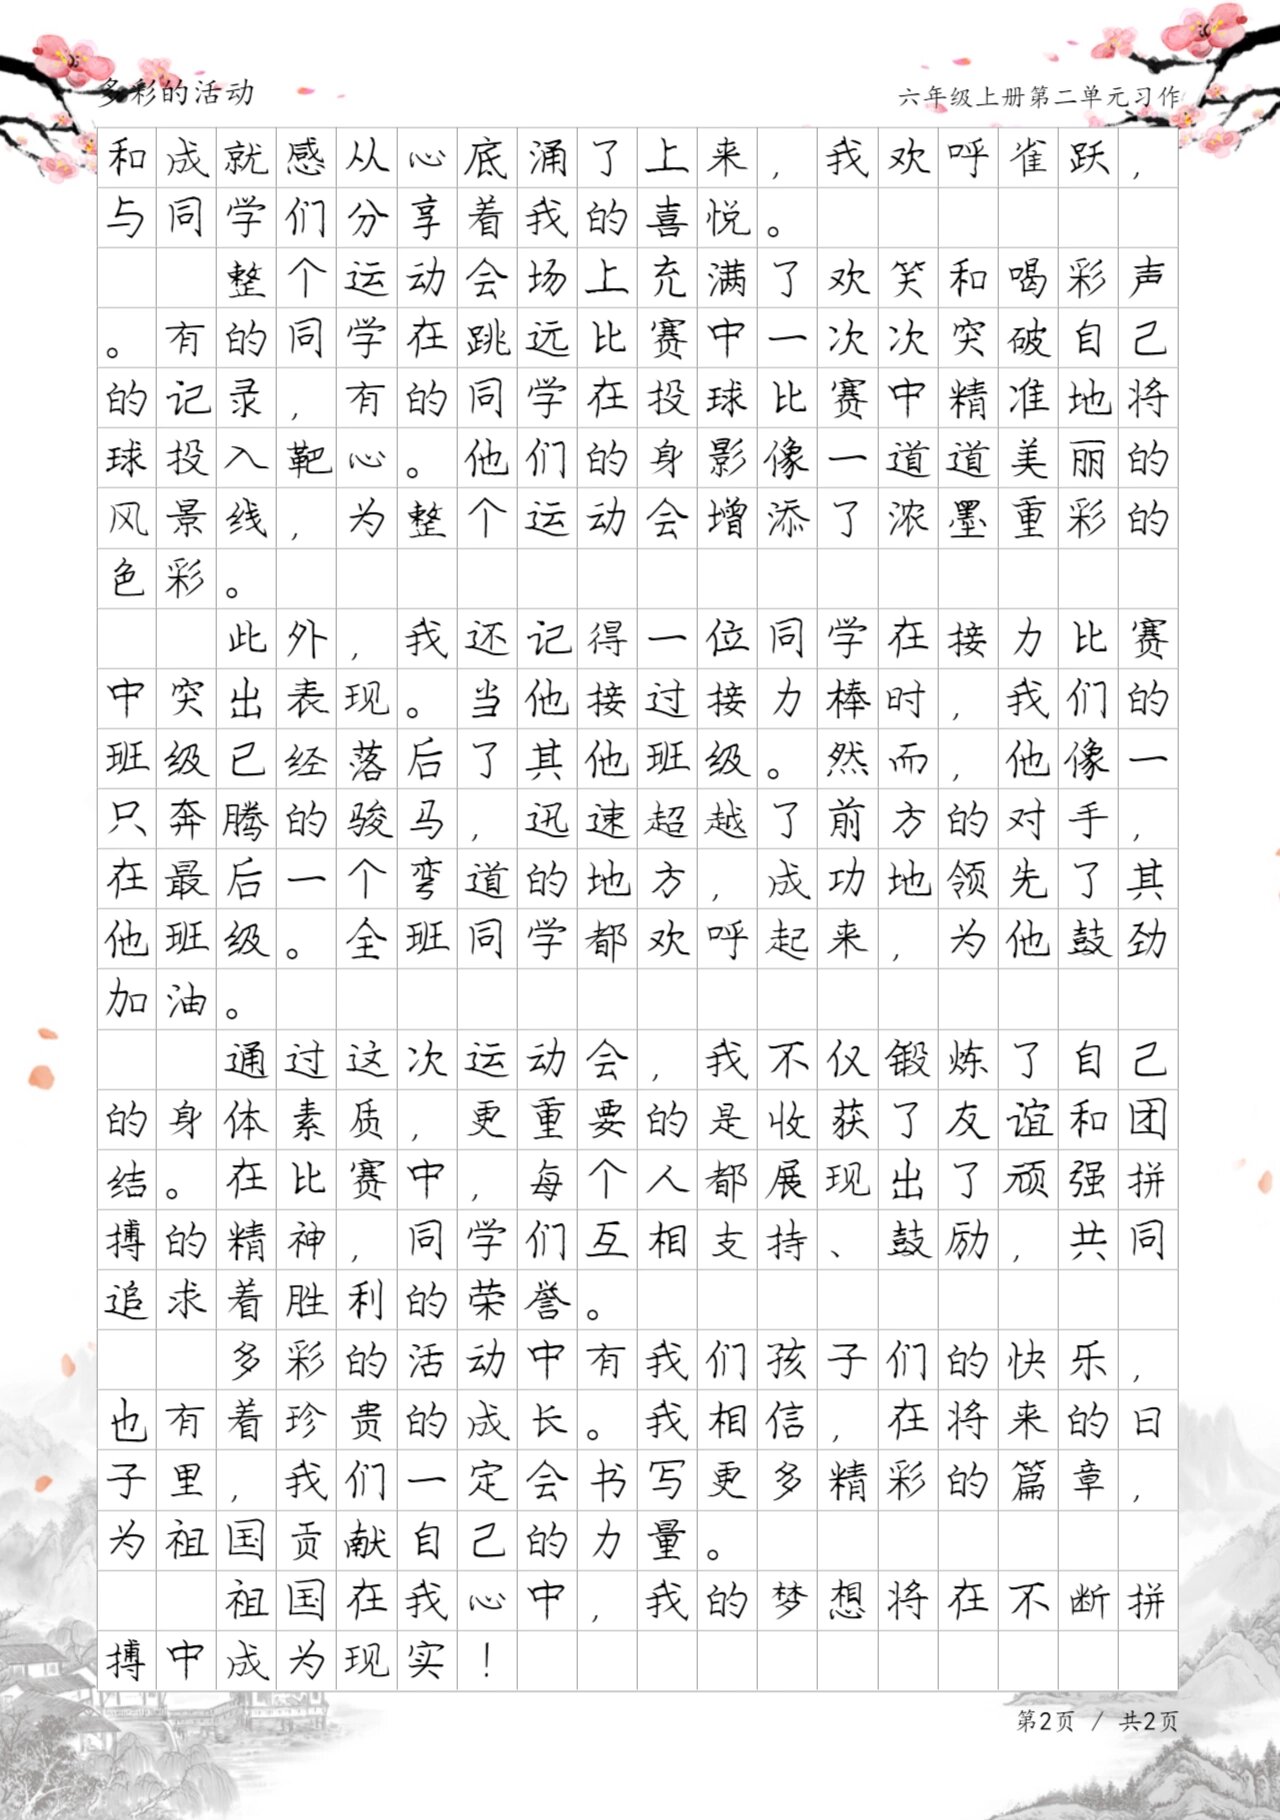 多彩的活动
六年级上册第二单元习作
和成就感从心底涌了上来，我欢呼雀跃，
与同学们分享着我的喜悦。
整个运动会场上充满了欢笑和喝彩声
。有的同学在跳远比赛中一次次突破自己
的记录，有的同学在投球比赛中精准地将
球投入靶心。他们的身影像一道道美丽的
风景线，为整个运动会增添了浓墨重彩的
色彩。
此外，我还记得一位同学在接力比赛
中突出表现。当他接过接力棒时，我们的
班级已经落后了其他班级。然而，他像一
只奔腾的骏马，迅速超越了前方的对手，
在最后一个弯道的地方，成功地领先了其
他班级。全班同学都欢呼起来，为他鼓劲
加油。
通过这次运动会，我不仅锻炼了自己
的身体素质，更重要的是收获了友谊和团
结。在比赛中，每个人都展现出了顽强拼
搏的精神，同学们互相支持、鼓励，共同
追求着胜利的荣誉。
多彩的活动中有我们孩子们的快乐，
也有着珍贵的成长。我相信，在将来的日
子里，我们一定会书写更多精彩的篇章，
为祖国贡献自己的力量。
祖国在我心中，我的梦想将在不断拼
搏中成为现实！
第2页 / 共2页